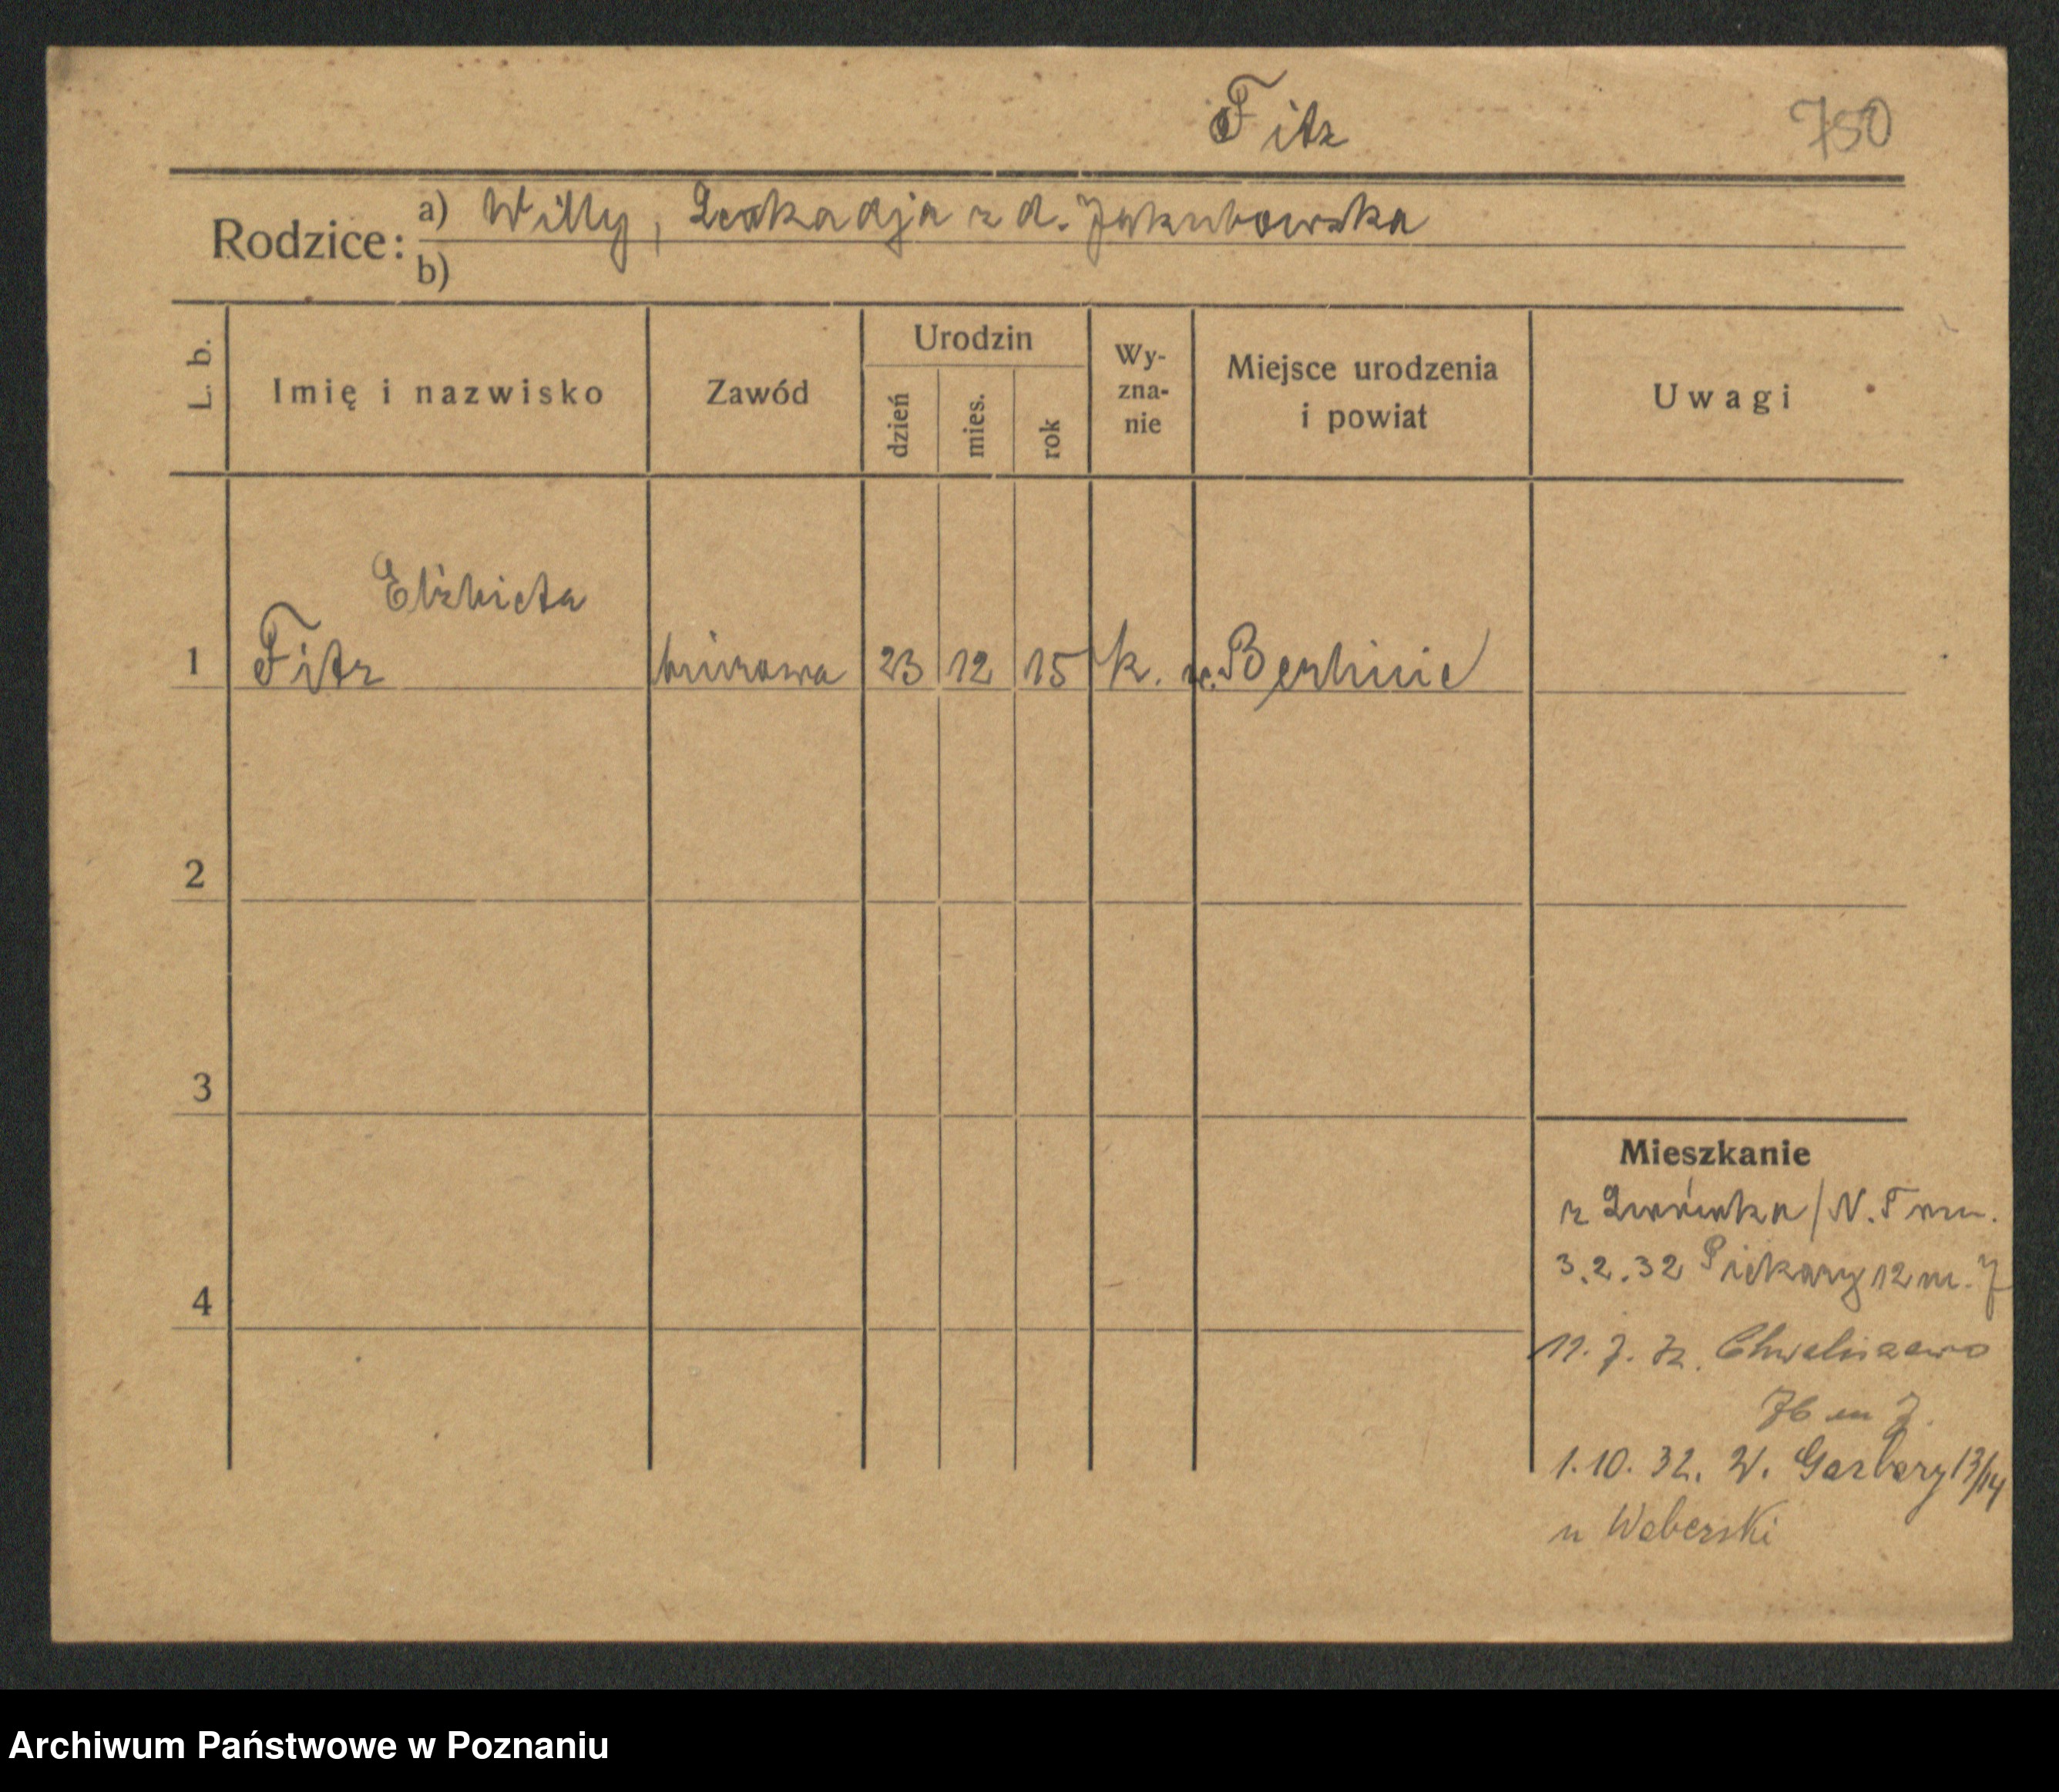 Fitz
750
Rodzice: a) Willy, Leokadja z d. Jakubowska
b)
L. b.
Imię i nazwisko
Zawód
Urodzin
dzień
mies.
rok
Wy-
zna-
nie
Miejsce urodzenia
i powiat
Uwagi
Elżbieta
1 Fitz biurowa 23 12 15 k. w. Berlinie
2
3
4
Mieszkanie
z Lwówka/N. Tom.
3.2.32 Piekary 12 m. 7
11. 7. 32. Chwaliszewo
76 m 7.
1.10.32. W. Garbary 13/14
u Weberski
Archiwum Państwowe w Poznaniu